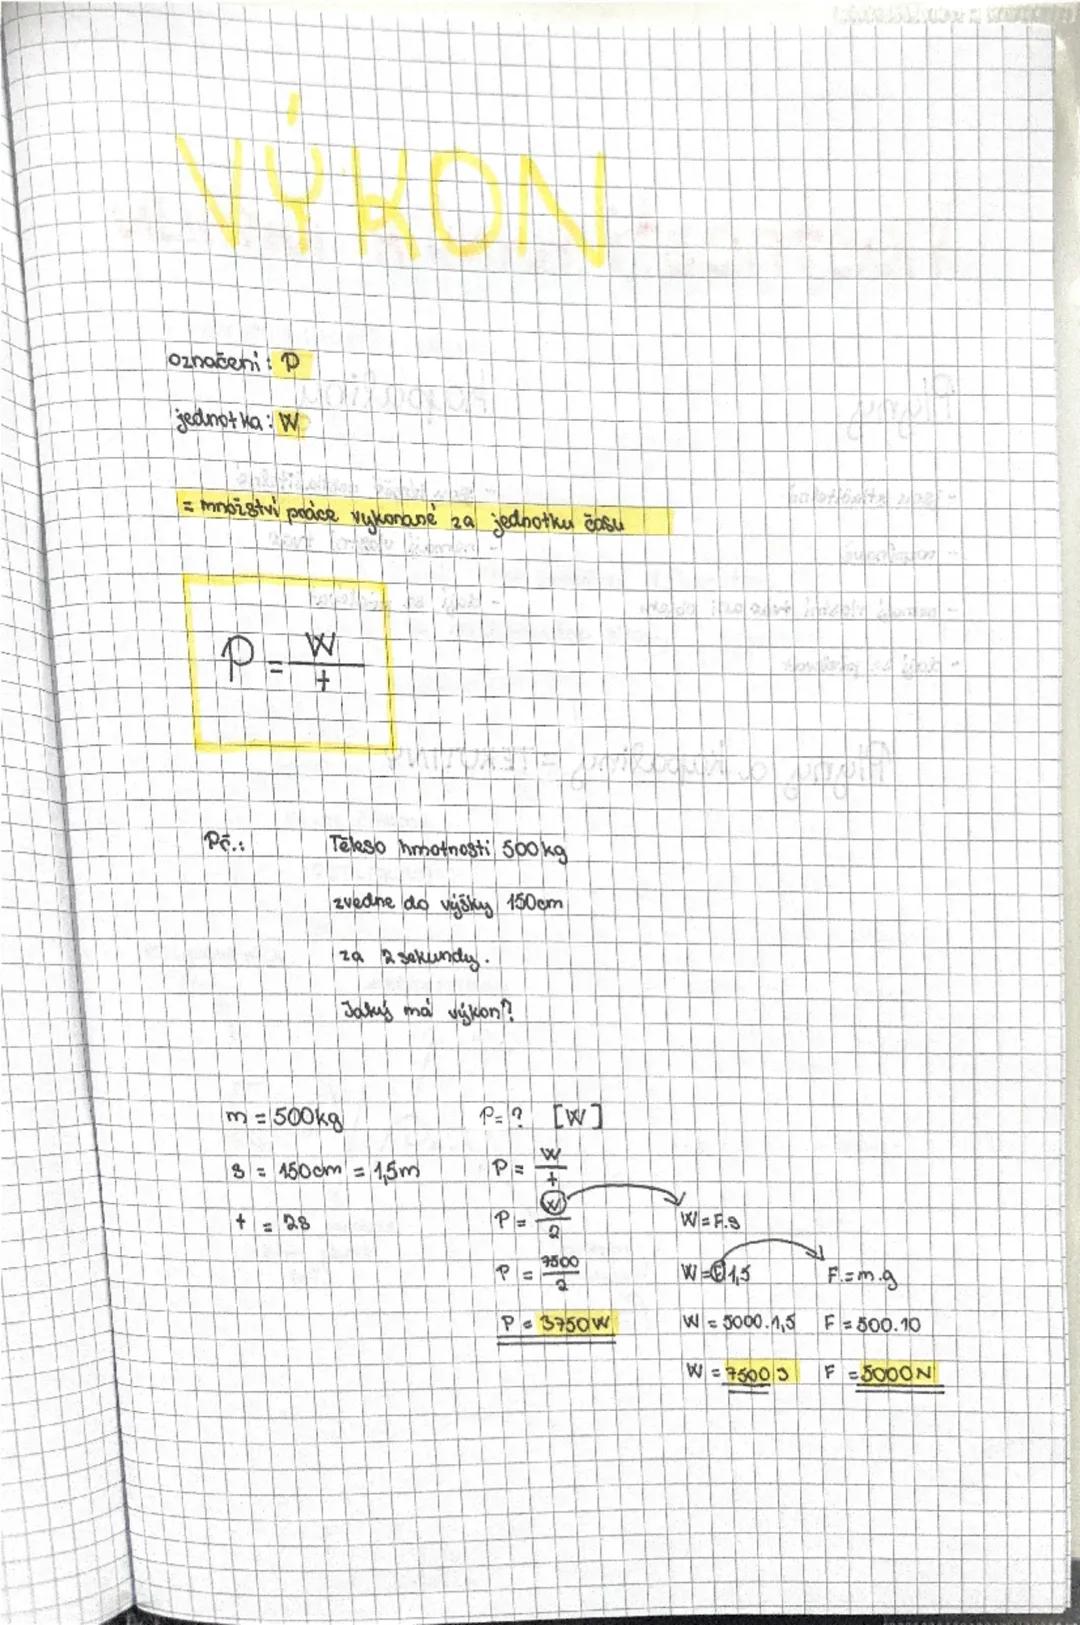 VÝKON
označení: P
jednotka: W
= množství práce vykonané za jednotku času
P = W / t
Př.: Těleso hmotnosti 500kg
zvedne do výšky 150cm
za 2 sekundy.
Jaký má výkon?
m = 500kg P = ? [W]
s = 150cm = 1,5m P = W / t
t = 2s P = W / 2 W = F.s
P = 7500 / 2 W = F.1,5 F = m.g
P = 3750W W = 5000.1,5 F = 500.10
W = 7500J F = 5000N